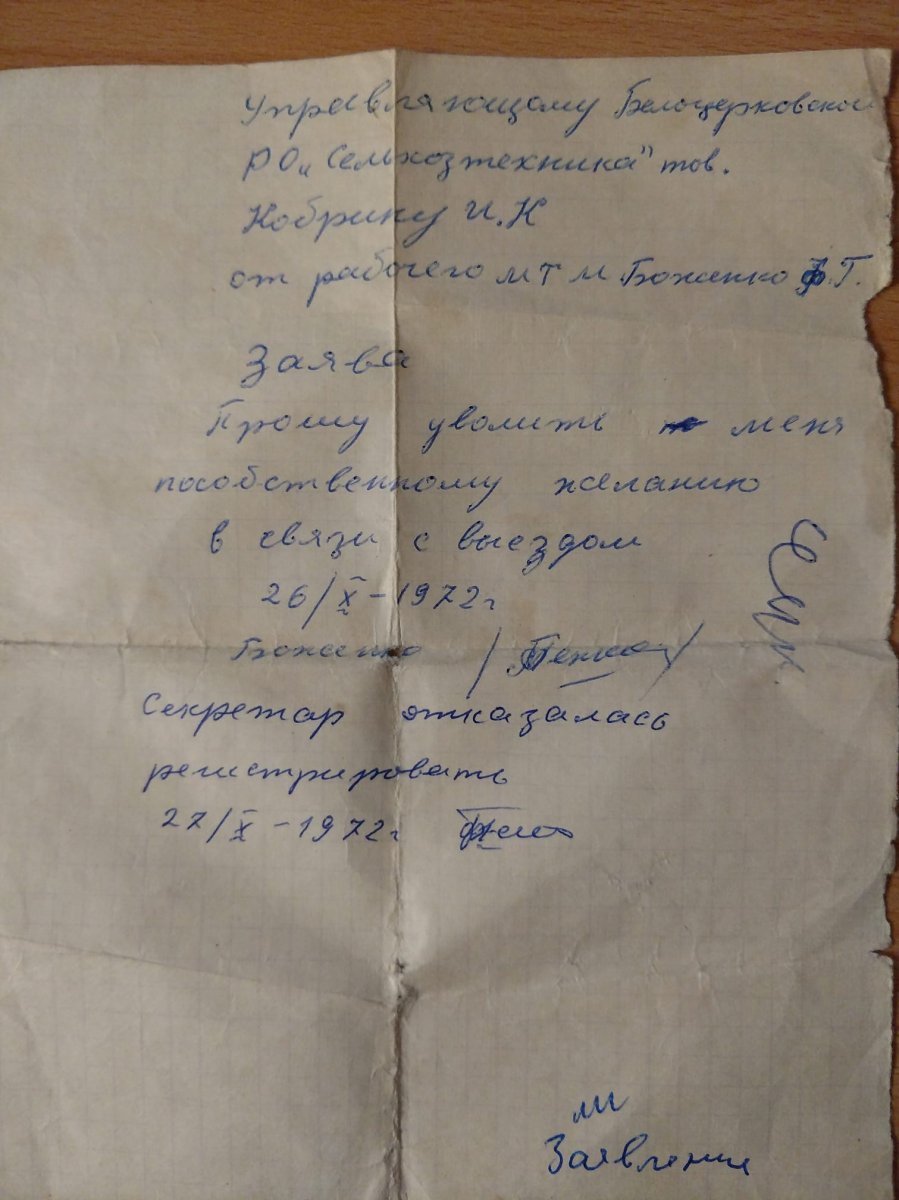 Управляющому Белоцерковской
РО „Сельхозтехника" тов.
Кобрину И.К
от рабочего МТМ Боженко Ф.Г.
Заява
Прошу уволить меня
пособственному желанию
в связи с выездом
26/X-1972г
Боженко
Секретар отказалась
регистрировать
27/X-1972г
Заявление